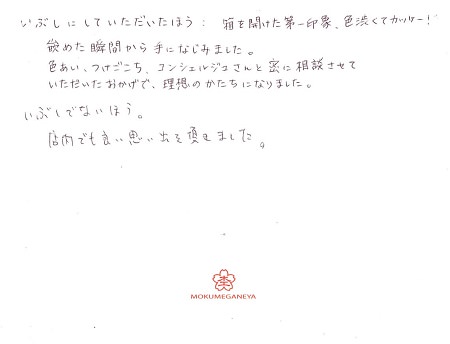 いぶしにしていただいたほう： 箱を開けた第一印象、色渋くてカッケー！
嵌めた瞬間から手になじみました。
色あい、つけごこち、コンシェルジュさんと密に相談させて
いただいたおかげで、理想のかたちになりました。
いぶしでないほう。
店内でも良い思い出を頂きました。
MOKUMEGANEYA